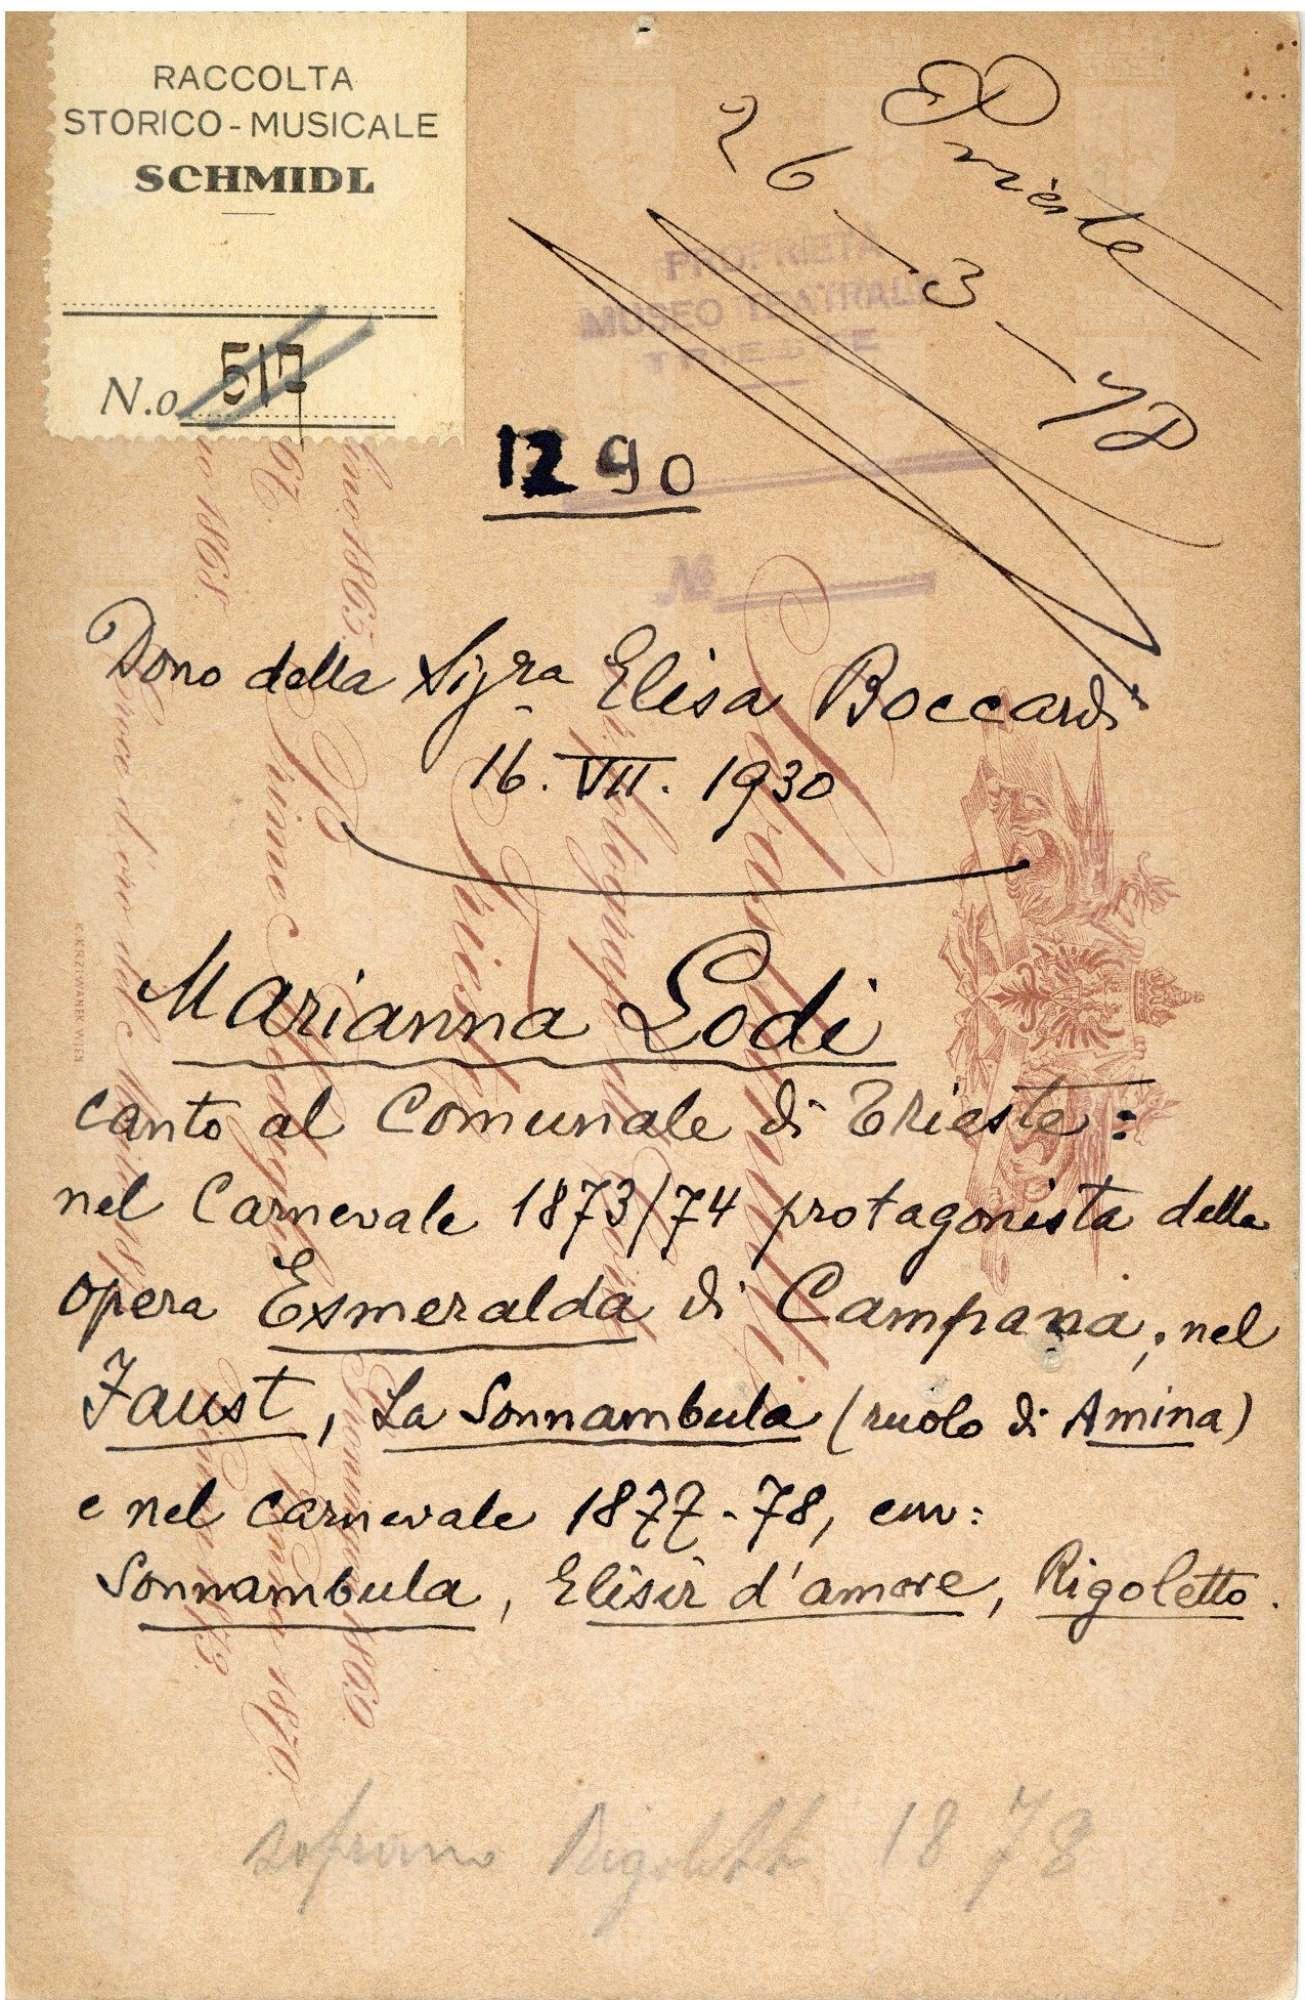 RACCOLTA
STORICO-MUSICALE
SCHMIDL
N.o 517
Trieste
26-3-78
PROPRIETÀ
MUSEO TEATRALE
TRIESTE
1290
No
Dono della Sigra Elisa Boccardi
16. VII. 1930
Marianna Lodi
canto al Comunale di Trieste:
nel Carnevale 1873/74 protagonista della
opera Esmeralda di Campana, nel
Faust, La Sonnambula (ruolo di Amina)
e nel carnevale 1877-78, em:
Sonnambula, Elisir d'amore, Rigoletto.
soprano Rigoletto 1878
K. KRZIWANEK WIEN
Trieste
1865
1868
1869
1870
1873